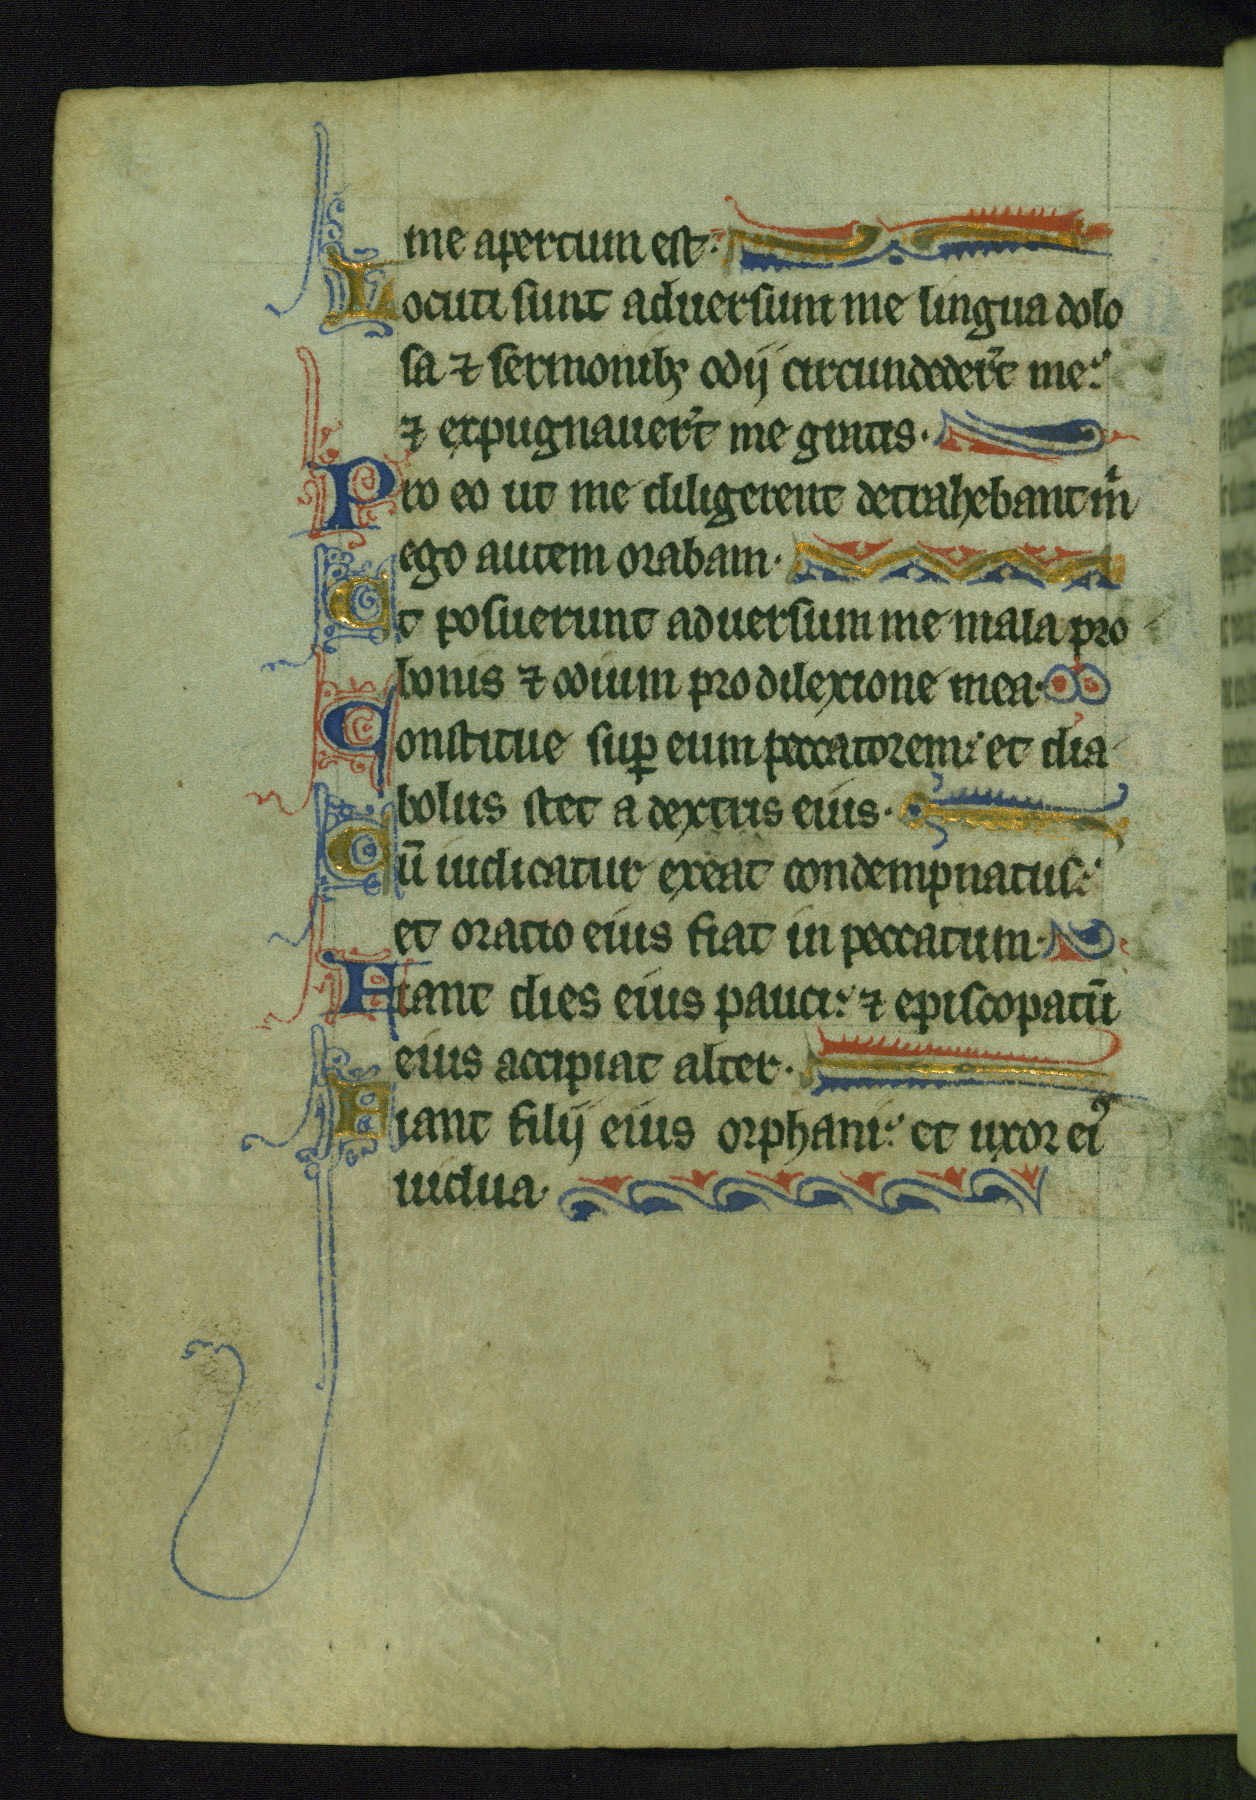 me apertum est.
Locuti sunt aduersum me lingua dolo
sa ⁊ sermonibꝫ odij circundeder̄t me:
⁊ expugnauer̄t me gratis.
Pro eo ut me diligerent detrahebant m̄
ego autem orabam.
Et posuerunt aduersum me mala pro
bonis ⁊ odium pro dilexione mea.
Constitue suꝑ eum peccatorem: et dia
bolus stet a dextris eius.
Cū iudicatur exeat condempnatus:
et oratio eius fiat in peccatum.
Fiant dies eius pauci: ⁊ episcopatū
eius accipiat alter.
Fiant filij eius orphani: et uxor ei᾽
uidua.